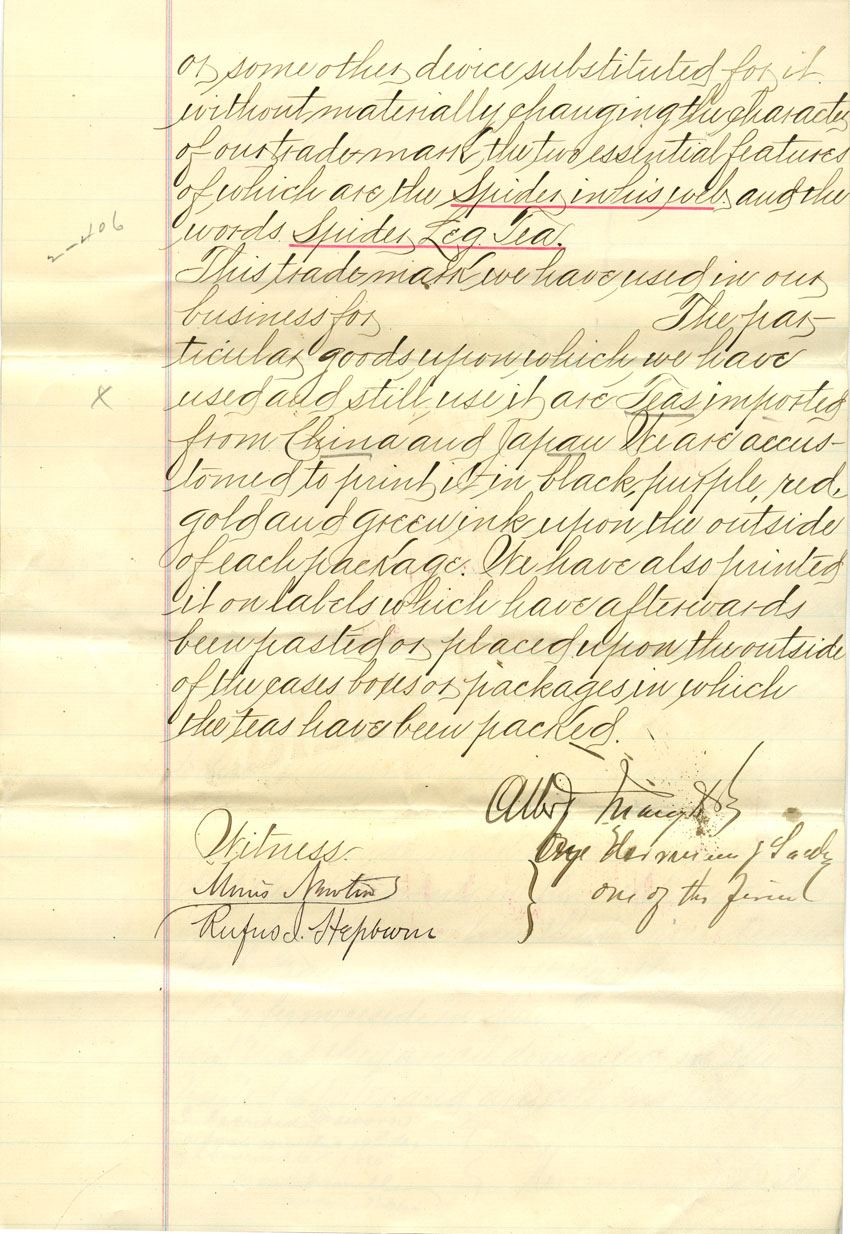 or some other device substituted for it
without materially changing the character
of our trade mark, the two essential features
of which are the Spider in his web and the
words Spider Leg Tea.
2-406
This trade mark we have used in our
business for The par-
ticular goods upon which we have
x
used and still use it are Teas imported
from China and Japan We are accus-
tomed to print it in black, purple, red,
gold and green ink upon the outside
of each package. We have also printed
it on labels which have afterwards
been pasted or placed upon the outside
of the cases boxes or packages in which
the teas have been packed.
Witness
one of the firm
Rufus J. Hepburn